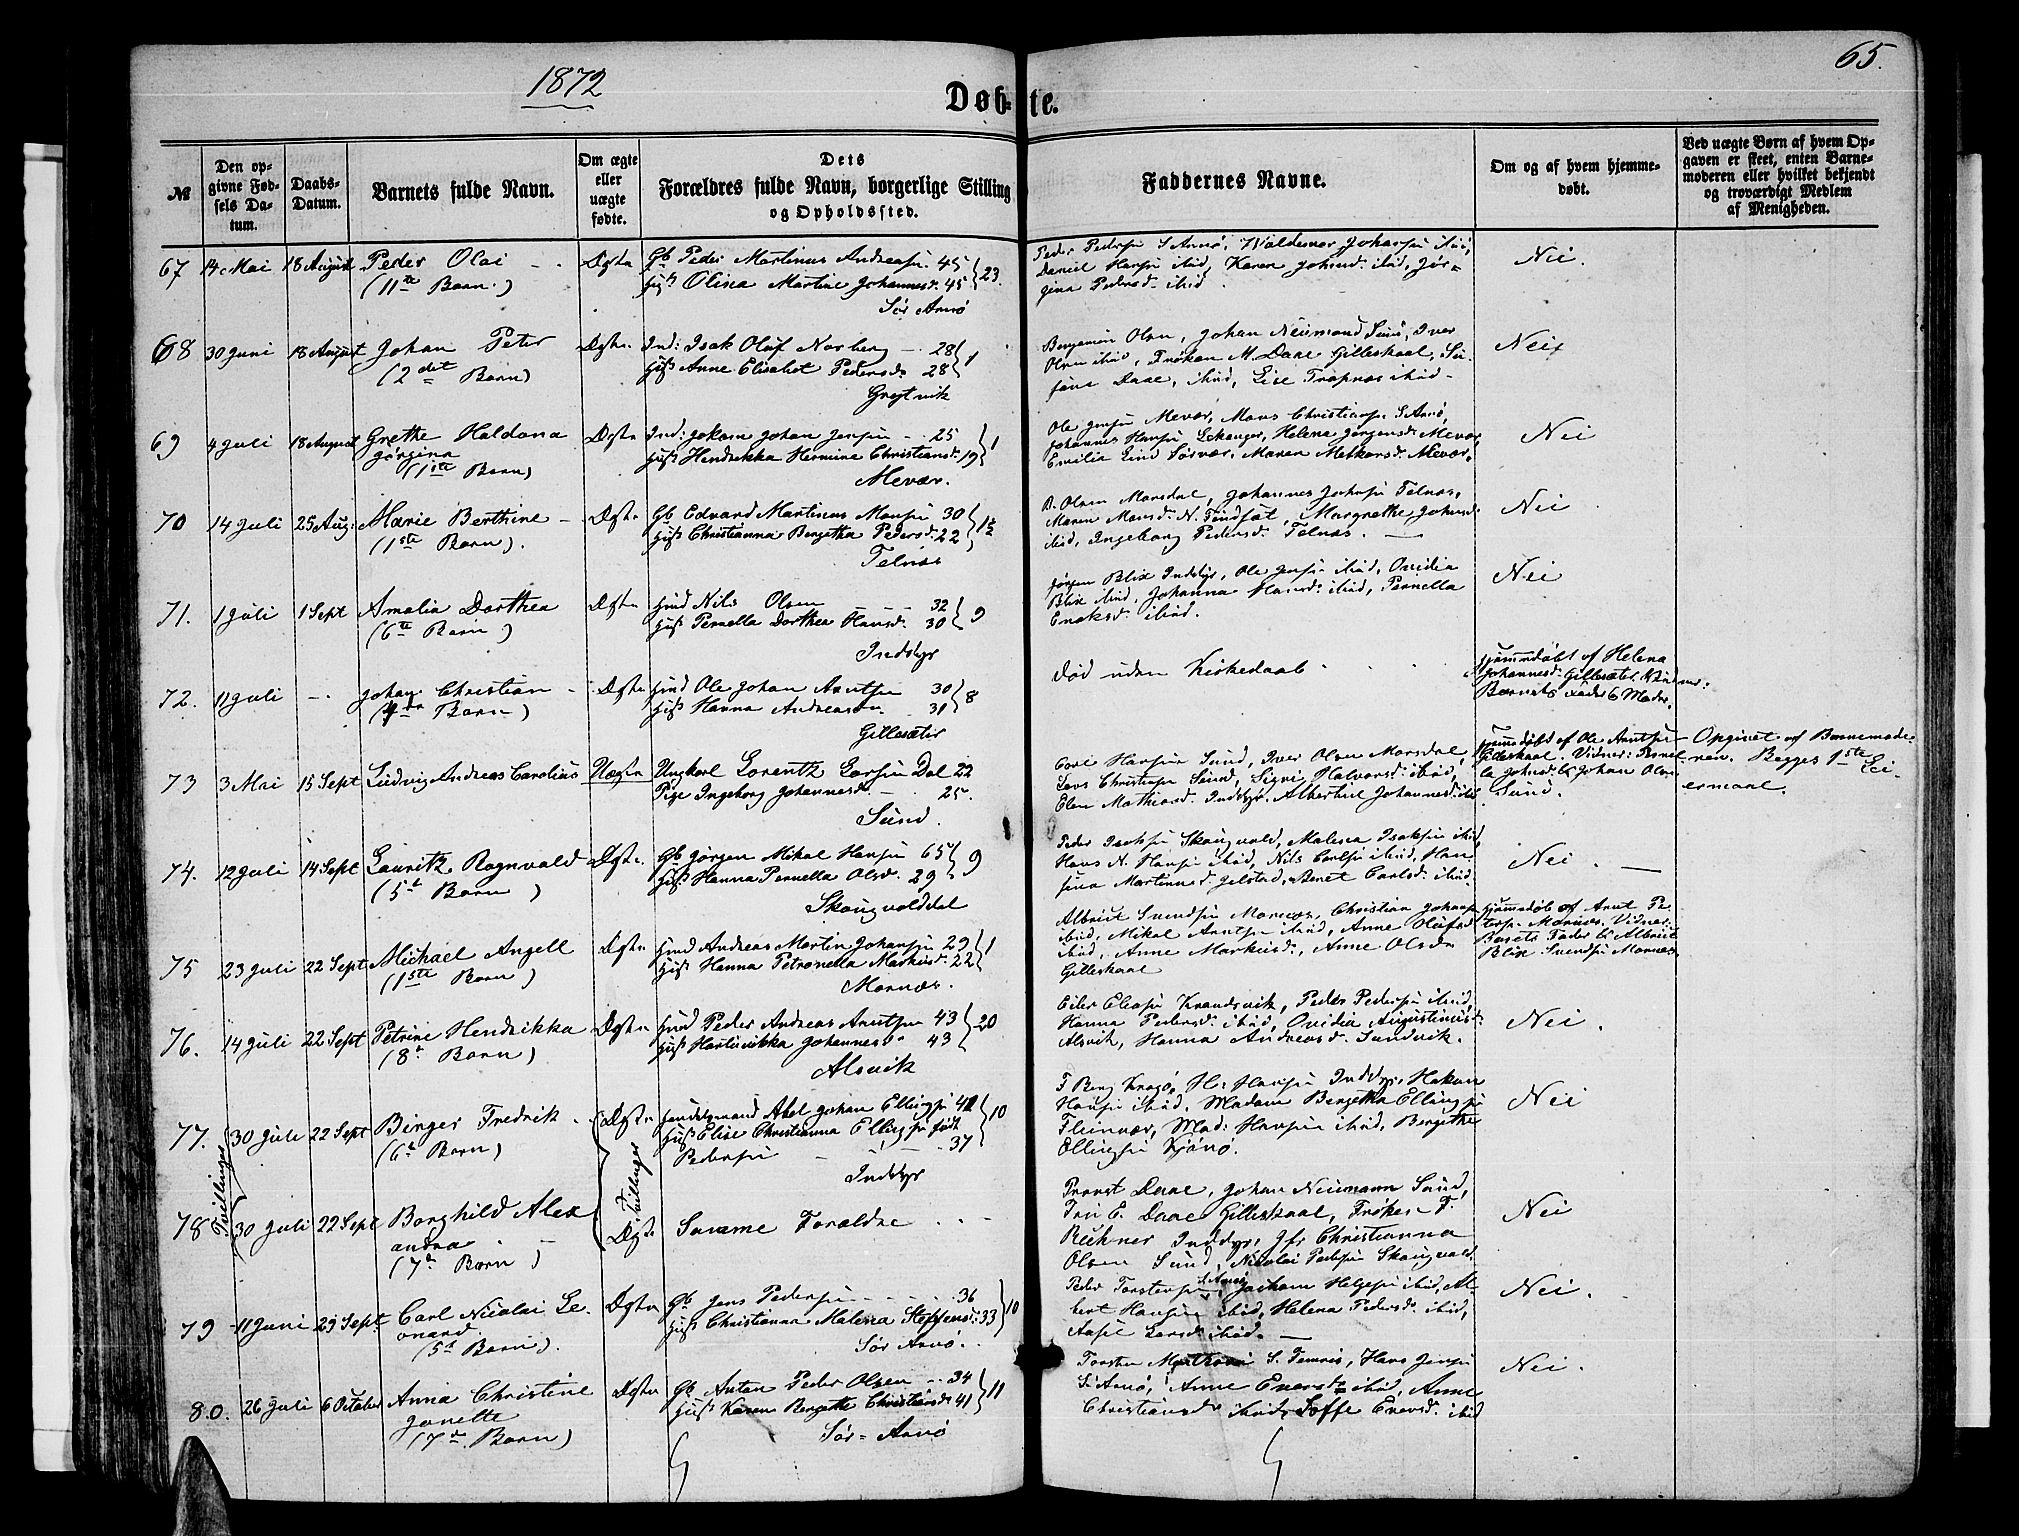 1872
65.
Døbte.
№
Den opgivne Fødsels Datum.
Daabs-Datum.
Barnets fulde Navn.
Om ægte eller uægte fødte.
Dets Forældres fulde Navn, borgerlige Stilling og Opholdssted.
Faddernes Navne.
Om og af hvem hjemmedøbt.
Ved uægte Børn af hvem Opgaven er skeet, enten Barnemoderen eller hvilket bekjendt og troværdigt Medlem af Menigheden.
67 14 Mai 18 August Peder Olai Ægte Gb Peder Martinus Andreasen 45
(11te Barn.) Hust Olina Martine Johannesd. 45 } 23.
Sør Arnø
Peder Pedersen S Arnø, Waldemar Johansen ibid,
Daniel Hansen ibid, Karen Johnsd. ibid, Jør-
gina Pedersd. ibid.
Nei.
68 30 Juni 18 August Johan Peter Ægte Ind: Isak Oluf Norberg 28
(2det Barn) Hust Anne Elisabet Pedersd. 28 } 1
Benjamin Olsen, Johan Neumand Sund, Iver
Olsen ibid, Frøken M. Daae Gilleskaal, Su-
sine Daae, ibid, Lise ibid
Nei
69 4 Juli 18 August Grethe Haldona Ægte Ind: Johan Jensen 25
Jørgina
(1ste Barn) Hust Hendrikka Hermine Christiansd. 19 } 1
Mevær.
Ole Jensen Mevær, Mons Christiansen S Arnø,
Johannes Hansen Helena Jørgensd. Mevær,
Emilie Lind Sørvær, Maren Mevær.
Nei
70 14 Juli 25 Aug: Marie Berthine Ægte Gb Edvard Martinus Monsen 30
(1ste Barn). Hust Christianna Bergetha Pedersd. 22 }
Telnæs
B. Olsen Marsdal, Johannes Telnæs,
Maren Monsd. N. Margrethe Johnsd.
ibid, Ingeborg Pedersd. Telnæs.
Nei
71. 1 Juli 1 Sept Amalia Dorthea Ægte Huusd Nils Olsen 32
(6te Barn) Hust Pernella Dorthea Hansd. 30 } 9
Inddyr
Jørgen Blix Inddyr, Ole Jensen ibid, Ovidia
Blix ibid, Johanna Hansd. ibid, Pernella
Enoksd. ibid.
Nei
72. 11 Juli Johan Christian Ægte Huusd Ole Johan Arntsen 30
(4de Barn) Hust Hanna Andreasd. 31 } 8
Gillesæter
Død uden Kirkedaab
Hjemmedøbt af Helena
Johannesd. Gillesæter. Vidner:
Barnets Fader & Moder.
73 3 Mai 15 Sept Ludvig Andreas Carolius Uægte Ungkarl Lorentz Larsen Dal 22
Pige Ingeborg Johannesd. 25.
Sund.
Carl Hansen Sund, Iver Olsen Marsdal,
Lars Christensen Sund, Sigri Halvorsd. ibid,
Elen Mathiasd. Inddyr, Albertine Johannesd. ibid
Hjemmedøbt af Ole Arntsen
Gilleskaal. Vidner: Pernel-
la Johnsd. & Johan Olsen
Sund.
Opgivet af Barnemode-
ren. Begges 1ste Lei-
ermaal.
74. 12 Juli 14 Sept Lauritz Ragnvald Ægte Gb Jørgen Mikal Hansen 65
(5te Barn) Hust Hanna Pernella Olsd. 29 } 9
Skaugvolddal
Peder Isaksen Skaugvold, Malena Isaksen ibid,
Hans N. Hansen ibid, Nils Carlsen ibid, Han-
sina Martinusd. Gilstad, Benet Carlsd. ibid.
Nei.
75 23 Juli 22 Sept Michael Angell Ægte Huusd Andreas Martin Johansen 29
(1ste Barn) Hust Hanna Petronella Markusd. 22 } 1
Mornæs.
Albrict Svendsen Mornæs, Christian Johansen
ibid, Mikal Arntsen ibid, Anne Olufsd.
ibid, Anne Markusd., Anne Olsd.
Gilleskaal
Hjemmedøbt af Arnt Pe-
tersen Mornæs. Vidner:
Barnets Fader & Albrict
Blix Svendsen Mornæs
76. 14 Juli 22 Sept Petrine Hendrikka Ægte Huusd Peder Andreas Arntsen 43
(8de Barn) Hust Hartvikka Johannesd. 43 } 20
Alsvik
Eiler Eliasen Peder Pedersen ibid,
Hanna Pedersd. ibid, Ovidia Augustinusd.
Alsvik, Hanna Andreasd. Sandvik.
Nei.
77. 30 Juli 22 Sept Birger Fredrik Ægte Handelsmand Abel Johan Ellingsen 42
(6te Barn) Hust Elise Christianna Ellingsen født
Pedersen 37 } 10
Inddyr
F Berg H: Hansen Inddyr, Hakon
Hansen ibid. Madam Bergetha Ellingsen
Fleinvær, Mad: Hansen ibid, Bergithe
Ellingsen
Nei
Tvillinger
Tvillinger
78 30 Juli 22 Sept Borghild Alex Ægte Samme Forældre
andra
(7de Barn)
Provst Daae, Johan Neumann Sund,
Fru E. Daae Gilleskaal, Frøken F.
Büchner Inddyr, Jfr Christianna
Olsen Sund, Nicolai Pedersen Skaugvold.
Nei
79 11 Juni 29 Sept. Carl Nicolai Le- Ægte Gb Jens Pedersen 36
onard
(5te Barn). Hust Christianna Malena Steffensd. 33 } 10
Sør Arnø.
Peder Torstensen S. Arnø, Jochum Helgesen ibid, Al-
bert Hansen ibid, Helena Pedersd. ibid,
Larsd. ibid.
Nei.
80. 26 Juli 6 October Anna Christine Ægte Gb Anton Peder Olsen 34
Janette
(7de Barn) Hust Karen Bergette Christiansd. 41 } 11
Sør-Arnø
Torsten S. Hans Jensen
S. Arnø, Anne Enersd. ibid, Anne
Christiansd. ibid, Enersd. ibid
Nei.